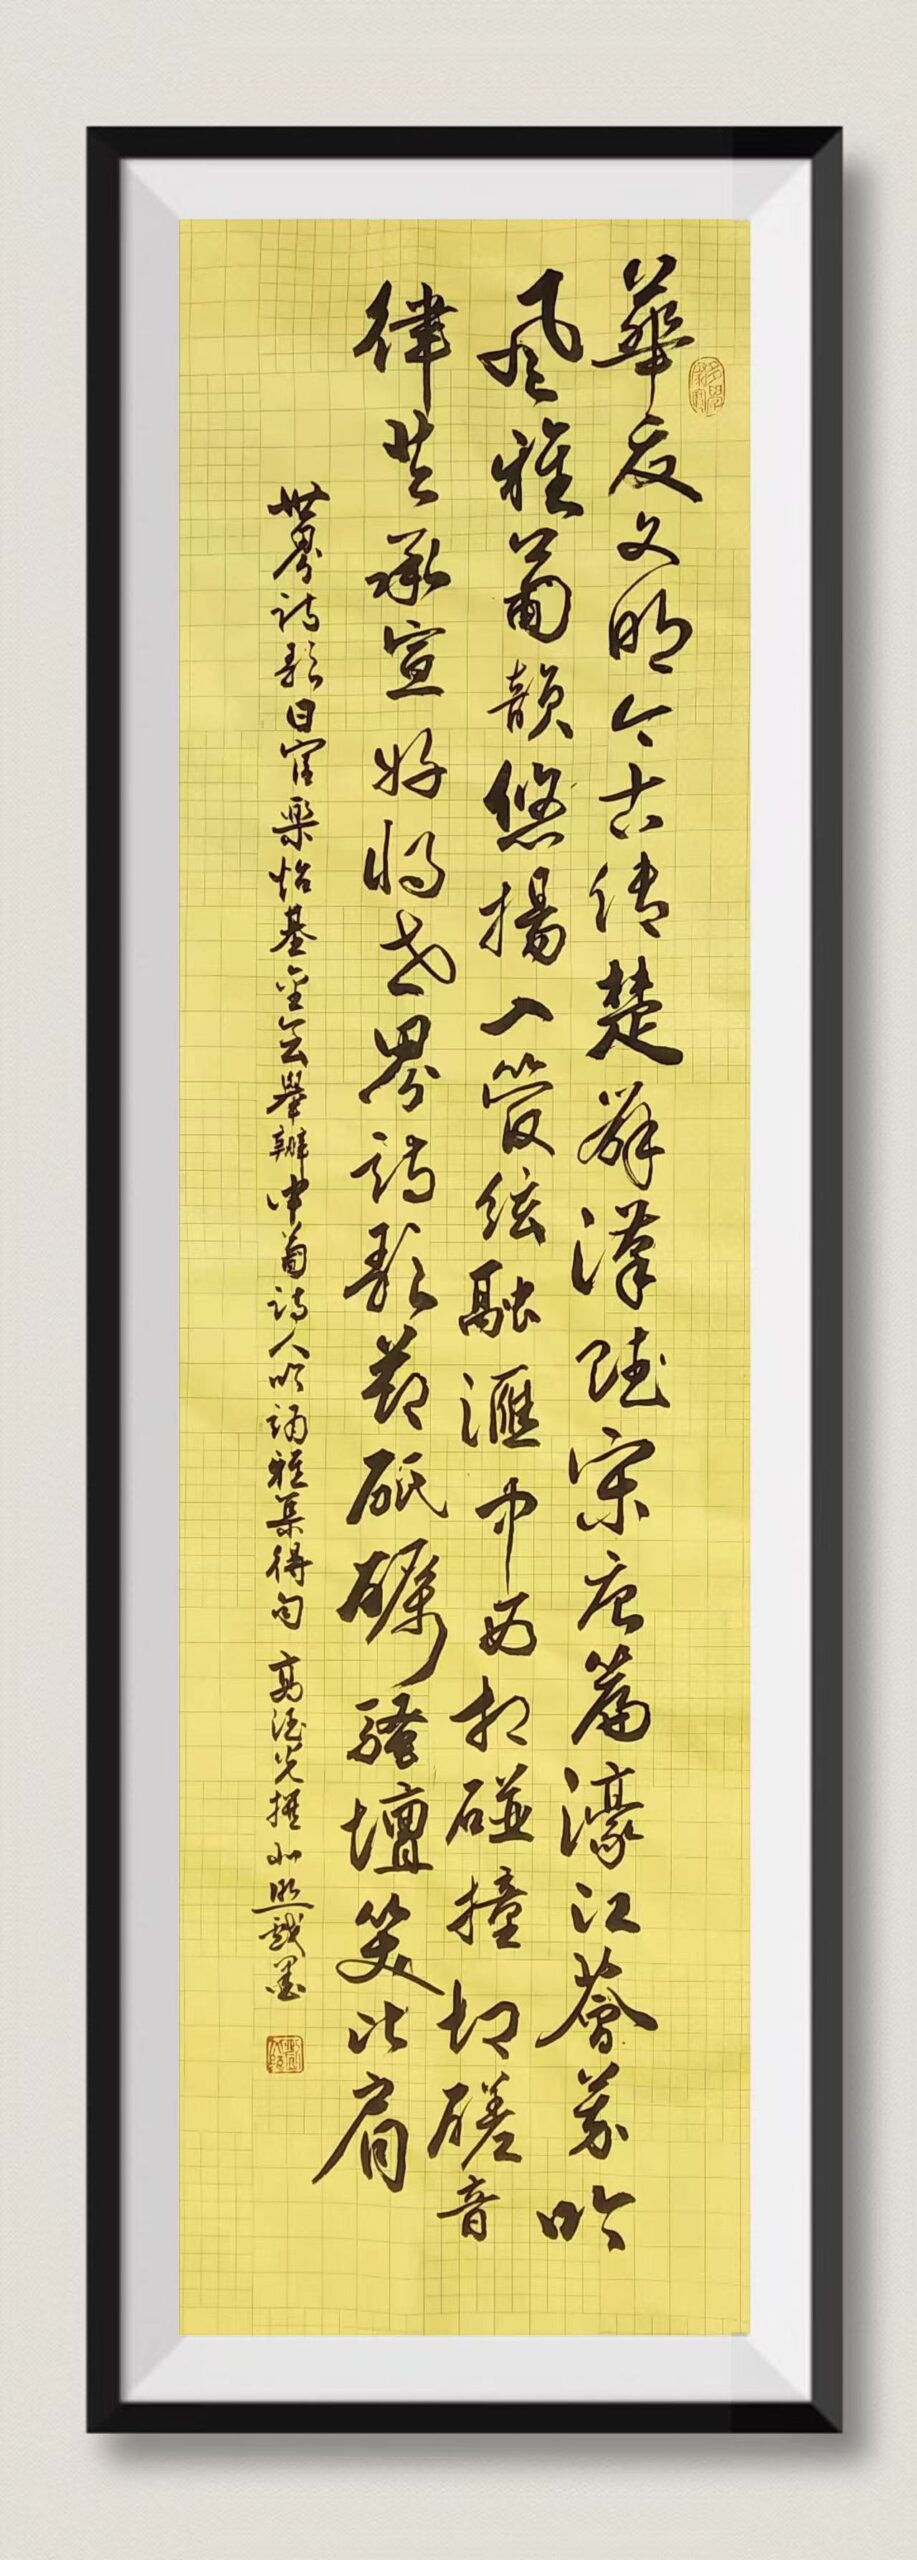 華夏文明今古傳楚辭漢賦宋唐篇濠江薈萃吟
風雅葡韻悠揚入管絃融滙中西相碰撞切磋音
律共承宣好將世界詩歌節砥礪騷壇笑比肩
世界詩歌日官樂怡基金會舉辦中葡詩人吟誦雅集得句 高光撰墨